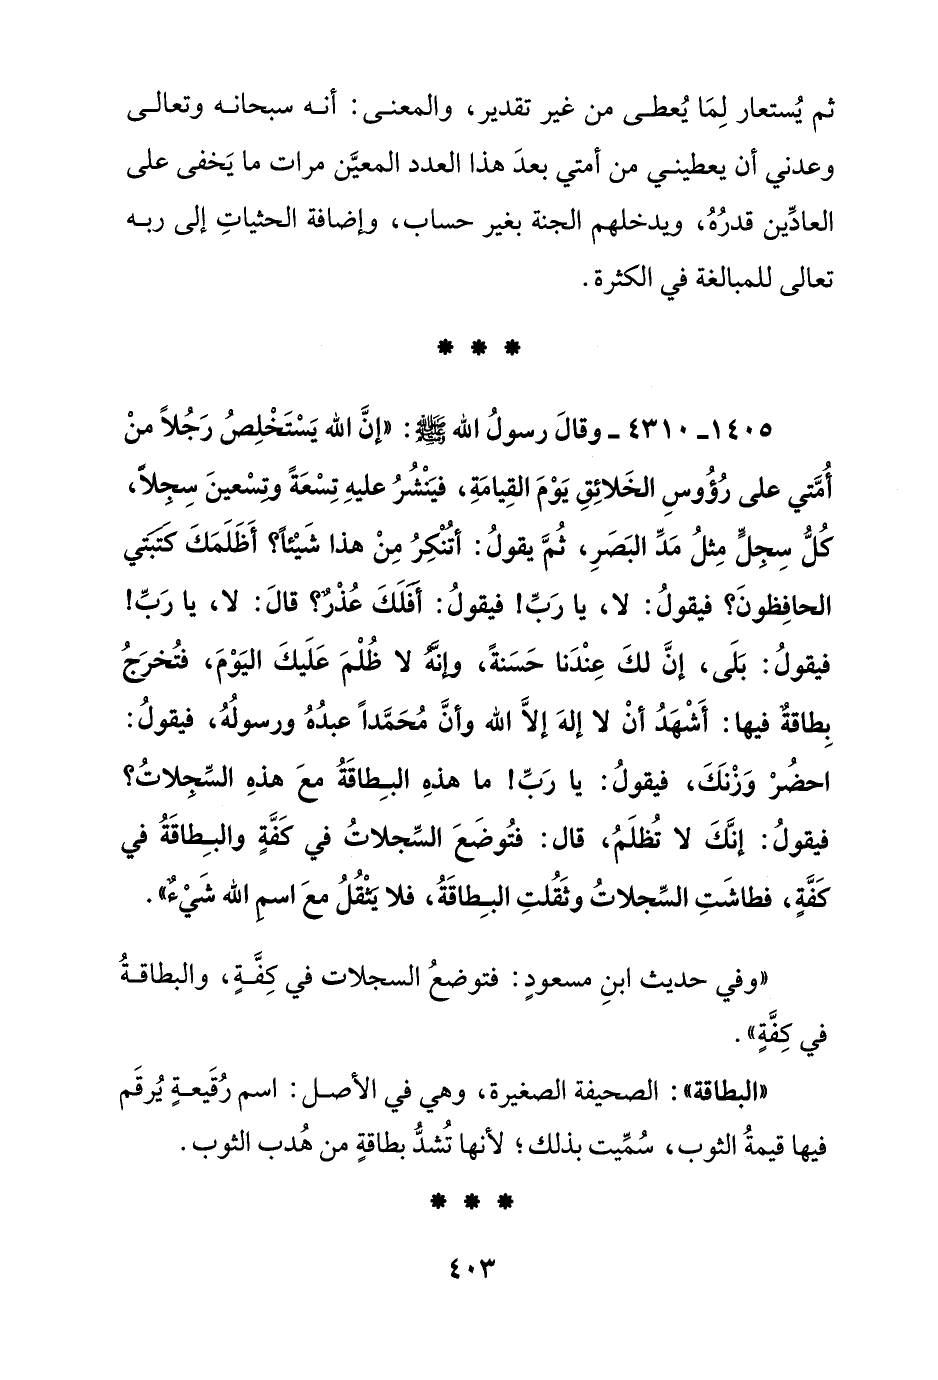 ثم يُستعار لِمَا يُعطى من غير تقدير، والمعنى: أنه سبحانه وتعالى
وعدني أن يعطيني من أمتي بعدَ هذا العدد المعيَّن مرات ما يَخفى على
العادِّين قدرُهُ، ويدخلهم الجنة بغير حساب، وإضافة الحثياتِ إلى ربه
تعالى للمبالغة في الكثرة.
* * *
١٤٠٥ ـ ٤٣١٠ ـ وقالَ رسولُ الله ﷺ: «إنَّ الله يَسْتَخْلِصُ رَجُلاً منْ
أُمَّتي على رُؤُوسِ الخَلائِقِ يَوْمَ القِيامَةِ، فيَنْشُرُ عليهِ تِسْعَةً وتِسْعينَ سِجِلاًّ،
كُلُّ سِجِلٍّ مِثلُ مَدِّ البَصَرِ، ثُمَّ يقولُ: أتُنْكِرُ مِنْ هذا شَيْئاً؟ أَظَلَمَكَ كَتَبَتي
الحافِظونَ؟ فيقولُ: لا، يا رَبِّ! فيقولُ: أَفَلَكَ عُذْرٌ؟ قالَ: لا، يا رَبِّ!
فيقولُ: بَلَى، إنَّ لكَ عِنْدَنا حَسَنةً، وإنَّهُ لا ظُلْمَ عَلَيكَ اليَوْمَ، فتُخرَجُ
بِطاقةٌ فيها: أَشْهَدُ أنْ لا إلهَ إلاَّ الله وأنَّ مُحَمَّداً عبدُهُ ورسولُهُ، فيقولُ:
احضُرْ وَزْنَكَ، فيقولُ: يا رَبِّ! ما هذهِ البِطاقَةُ معَ هذهِ السِّجِلاتُ؟
فيقولُ: إنَّكَ لا تُظلَمُ، قال: فتُوضَعَ السِّجلاتُ في كَفَّةٍ والبِطاقَةُ في
كَفَّةٍ، فطاشَتِ السِّجلاتُ وثَقُلتِ البِطاقَةُ، فلا يَثْقُلُ معَ اسمِ الله شَيْءٌ».
«وفي حديث ابنِ مسعودٍ: فتوضعُ السجلات في كِفَّةٍ، والبطاقةُ
في كِفَّةٍ».
«البطاقة»: الصحيفة الصغيرة، وهي في الأصل: اسم رُقَيعةٍ يُرقَم
فيها قيمةُ الثوب، سُمِّيت بذلك؛ لأنها تُشدُّ بطاقةٍ من هُدب الثوب.
* * *
٤٠٣